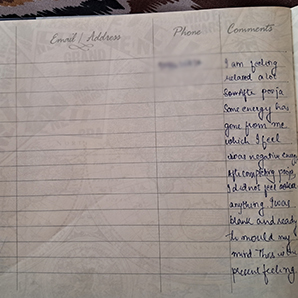 Email / Address Phone Comments
I am feeling
relaxed a lot
After pooja
Some energy has
gone from me
which I feel
was negative energy
After completing pooja
I did not feel
anything. I was
blank and ready
to mould my
mind. This is the
present feeling